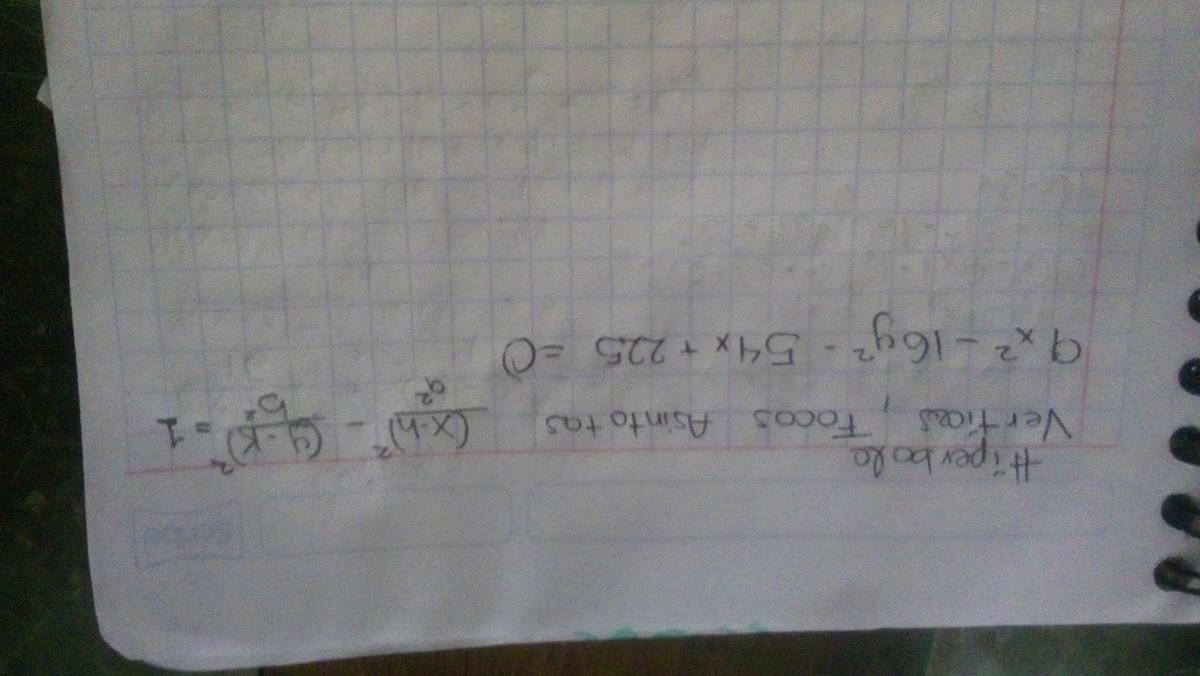 scribe
Hiperbola
Vertices, Focos Asintotas (x-h)²/a² - (y-k)²/b² = 1
9x² - 16y² - 54x + 225 = 0